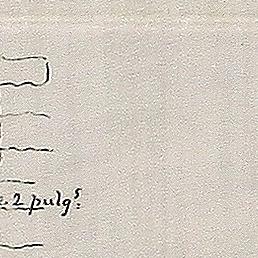 2 pulgˢ.